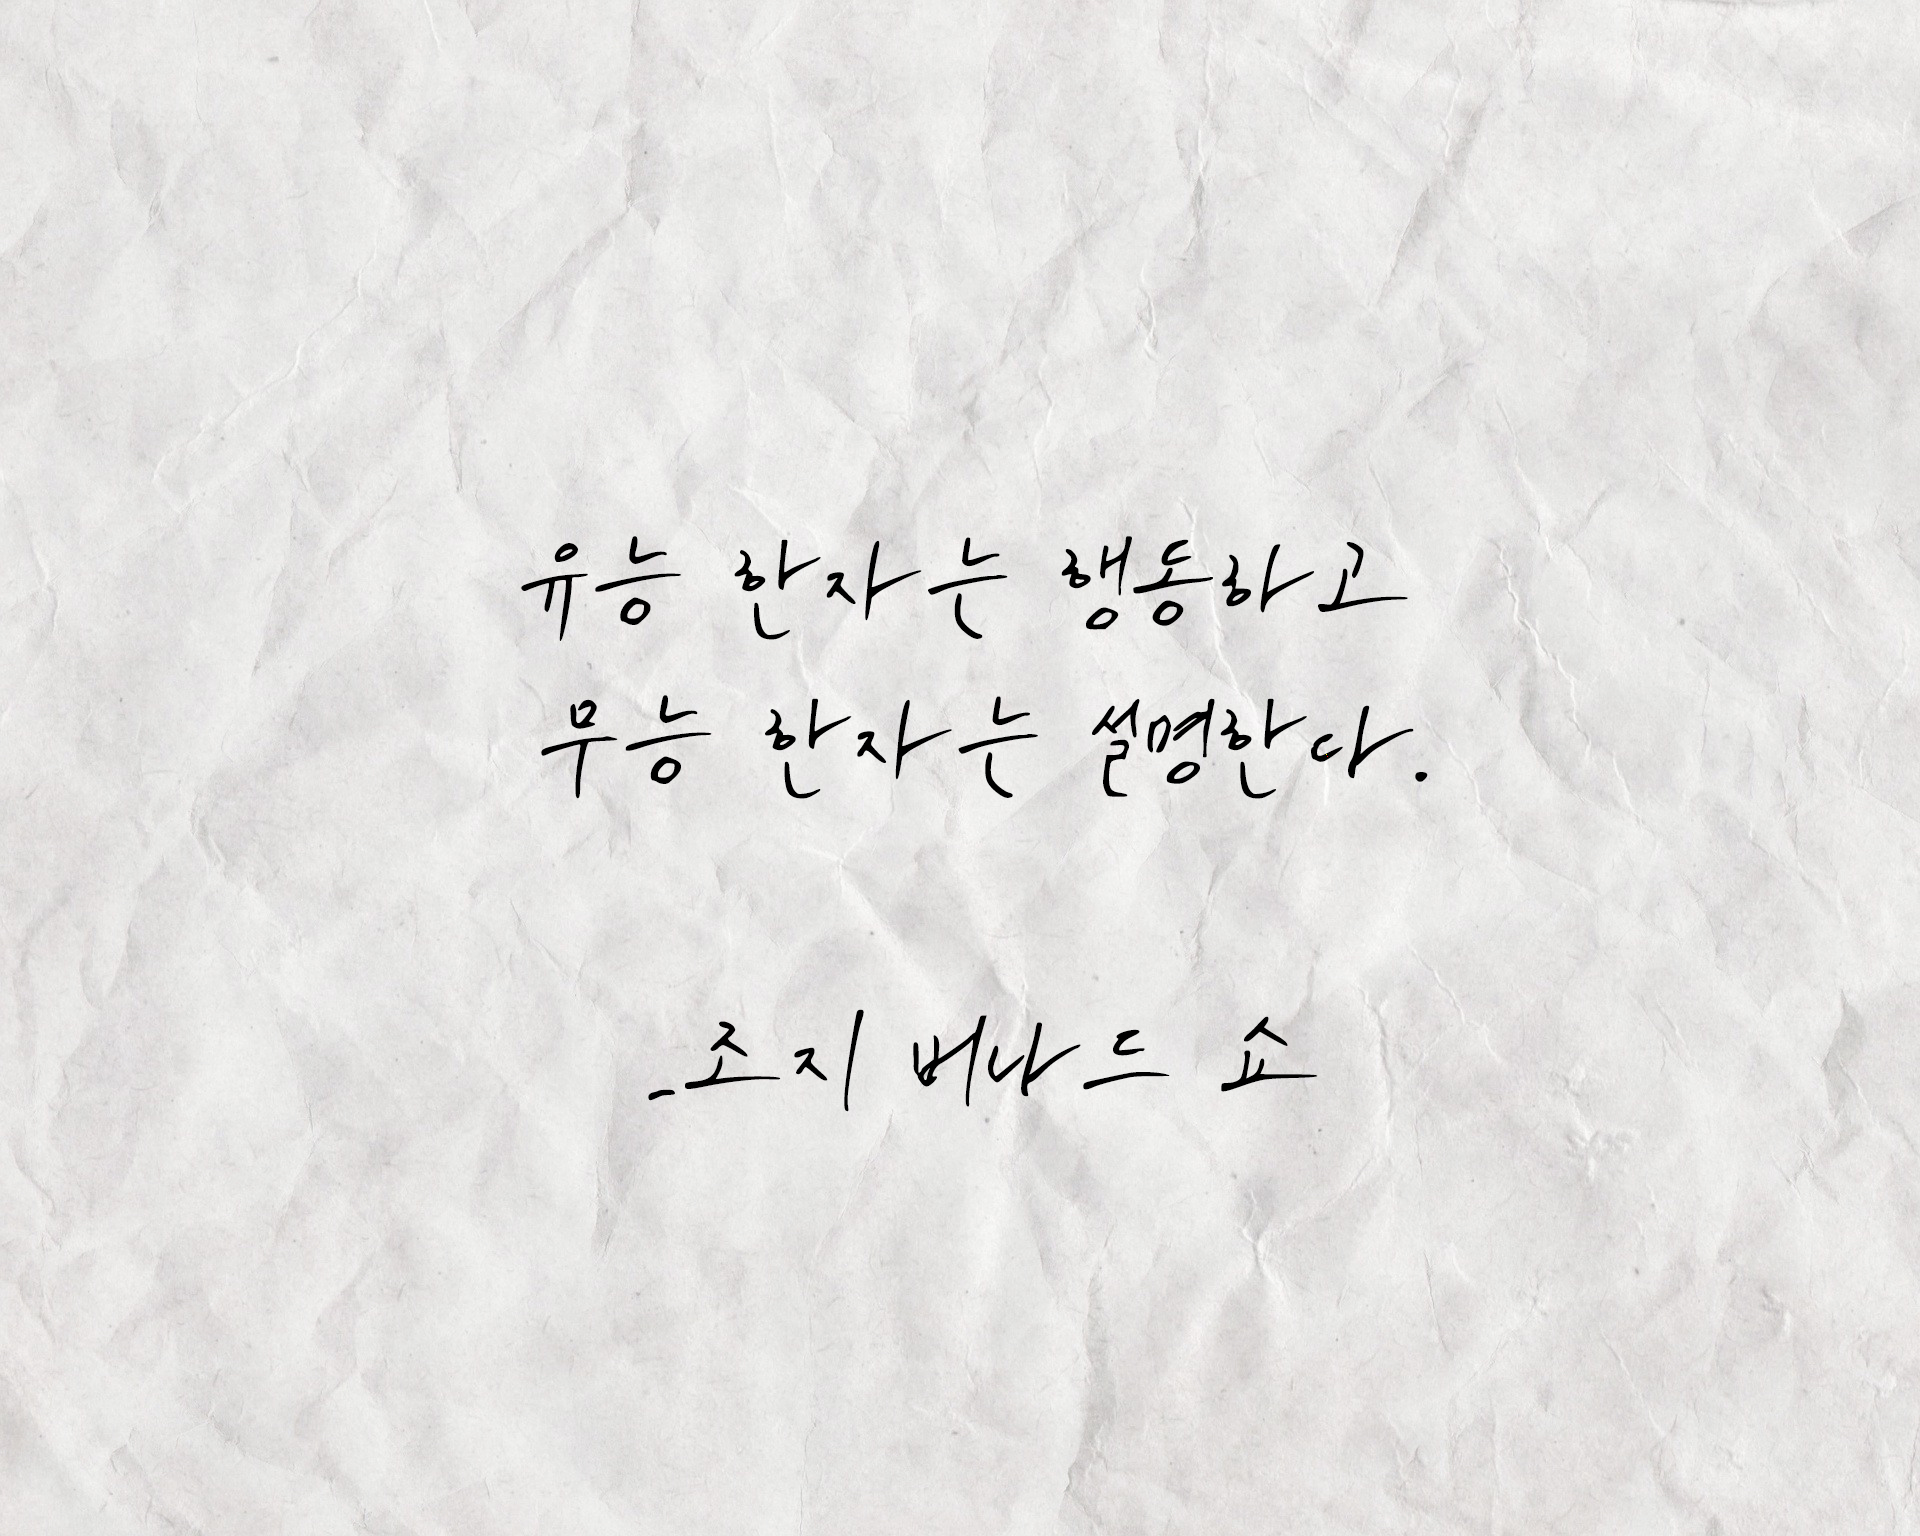 유능 한자는 행동하고
무능 한자는 설명한다.
_조지 버나드 쇼